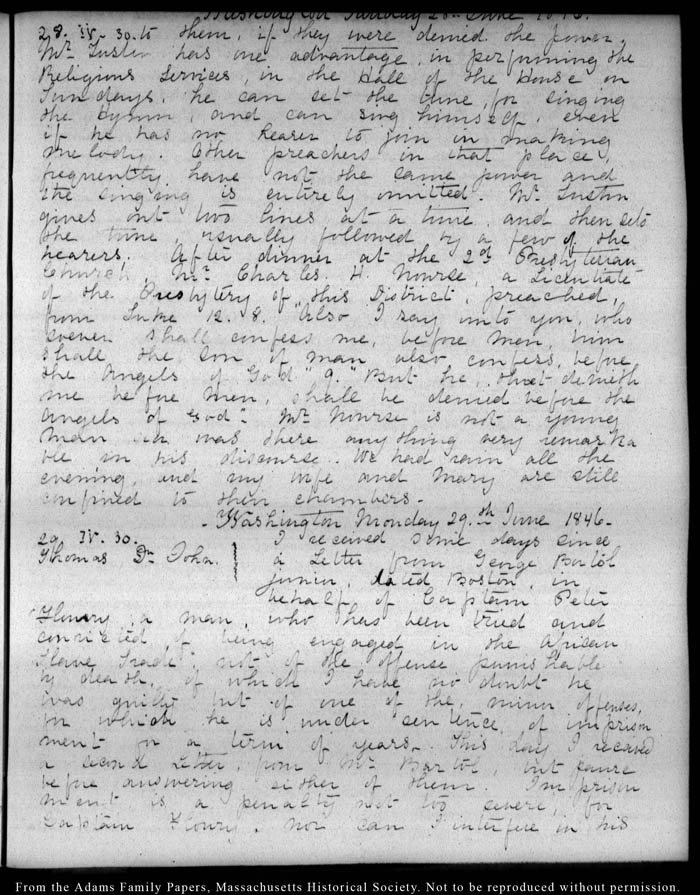 Washington Sunday 28th June 1846.
28. IV. 30. to them, if they were denied the power.
Mr. Tustin has one advantage, in performing the
Religious Services, in the Hall of the House on
Sundays. he can set the tune, for singing
the Hymn, and can sing himself, even
if he has no hearer to join in making
melody. Other preachers in that place,
frequently have not the same power and
the singing is entirely omitted. Mr. Tustin
gives out two lines at a time, and then sets
the tune usually followed by a few of the
hearers. After dinner at the 2d Presbyterian
Church, Mr. Charles. H. Nourse, a Licentiate
of the Presbytery of this District, preached,
from Luke 12. 8. "Also I say unto you, who
soever shall confess me, before men, him
shall the Son of man also confess, before
the Angels of God" 9. "But he, that denieth
me before men, shall be denied before the
Angels of God". Mr. Nourse is not a young
man was there any thing very remarka
ble in his discourse. We had rain all the
evening, and my wife and Mary are still
confined to their chambers.
Washington Monday 29th June 1846.
29. IV. 30. I received some days since
Thomas Dr. John. } a Letter from George Bartol
junior, dated Boston, in
behalf of Captain Peter
Flowry, a man, who has been tried and
convicted of being engaged in the African
Slave Trade; not of the offense punishable
by death, of which I have no doubt he
was guilty but of one of the minor offenses,
for which he is under sentence of imprison
ment for a term of years. This day I received
a second Letter, from Mr. Bartol, but pause
before answering either of them. Imprison
ment is a penalty not too severe, for
Captain Flowry. nor can I interfere in his
From the Adams Family Papers, Massachusetts Historical Society. Not to be reproduced without permission.